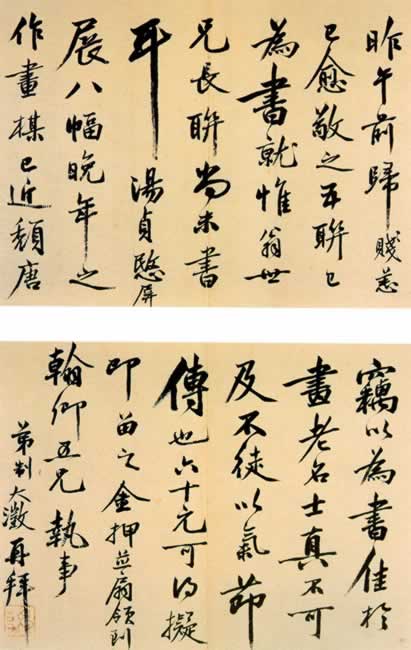 昨午前歸賤恙
已愈敬之五聯已
為書就惟翁世
兄長聯尚未書
耳湯貞愍屏
展八幅晚年之
作畫楳已近頹唐
竊以為書佳於
畫老名士真不可
及不徒以氣節
傳也六十元可得擬
即留之金押並扇領到
翰卿五兄執事
弟制大澂再拜